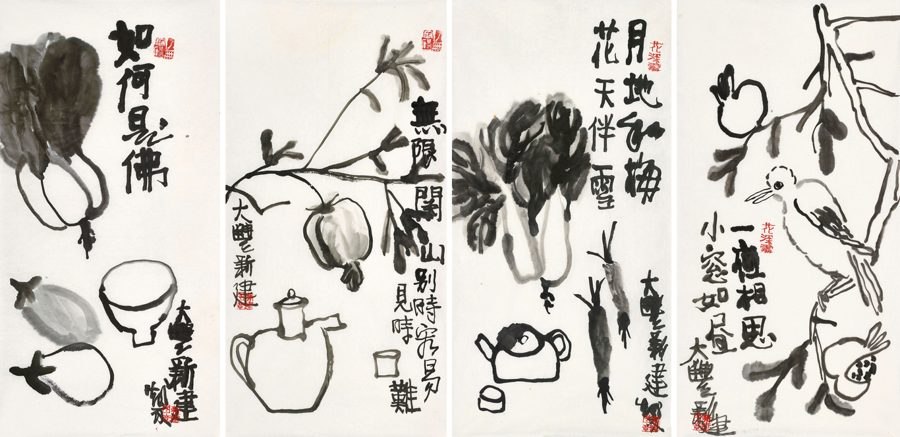 如何是佛
大豐新建
無限關山別時容易
見時難
大豐新建
月地和梅
花天伴雪
大豐新建
一種相思
小窓如昼
大豐新建